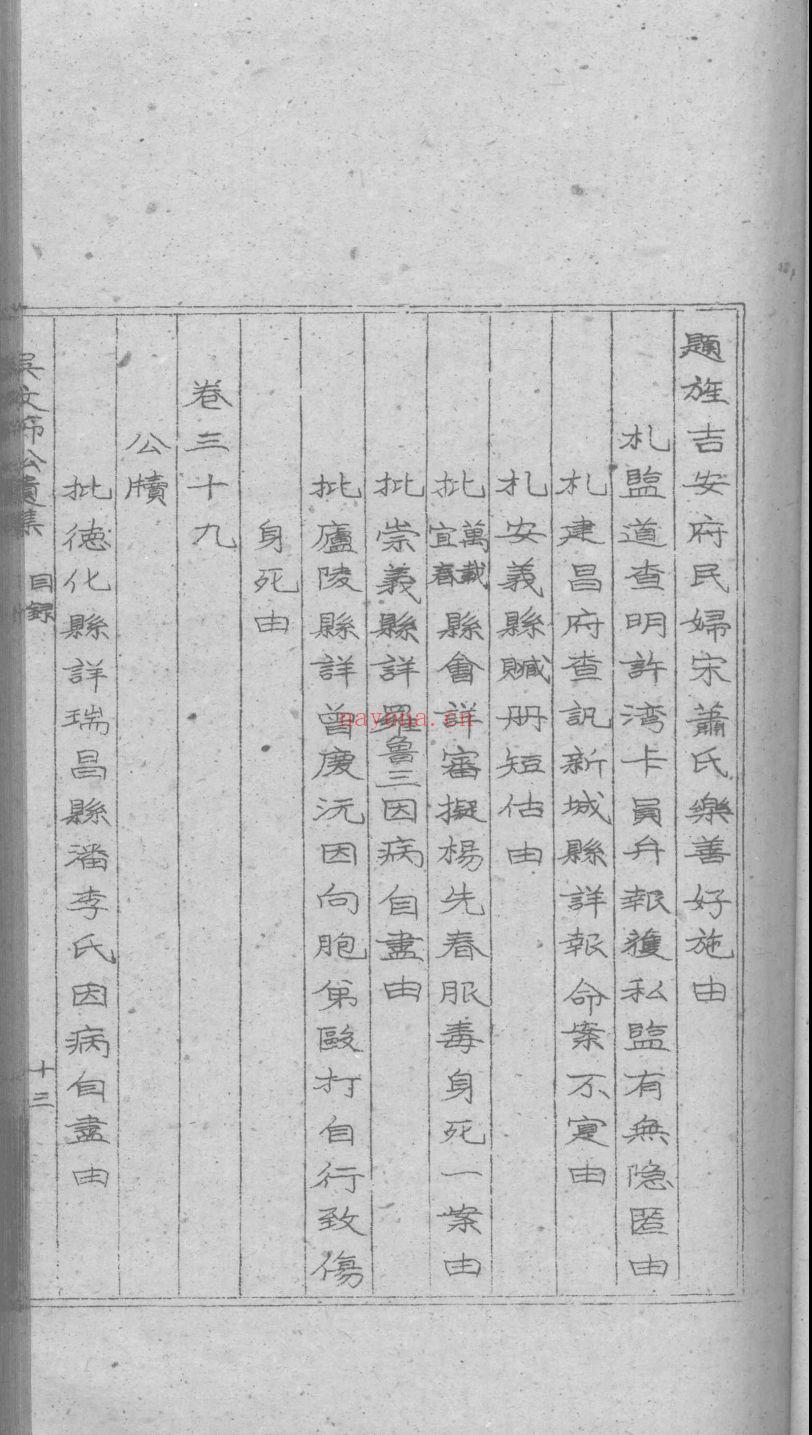 題旌吉安府民婦宋蕭氏樂善好施由
札監道查明許湾卡員弁報獲私監有無隐匿由
札建昌府查訊新城縣詳報命案不寔由
札安義縣贓册短估由
批萬載宜春縣會詳審擬楊先春服毒身死一案由
批崇義縣詳羅魯三因病自盡由
批廬陵縣詳曾慶沅因向胞弟毆打自行致傷
身死由
卷三十九
公牘
批德化縣詳瑞昌縣潘李氏因病自盡由
吳文節公遺集 目録 十三
nayona.cn